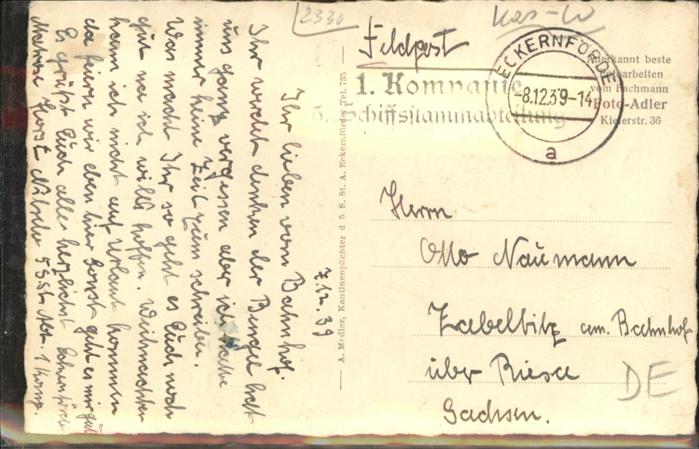 2330
Kas-W
Feldpost
ECKERNFÖRDE
-8.12.39-14
a
1. Kompanie
5. Schiffsstammabteilung
Anerkannt beste
Fotoarbeiten
vom Fachmann
Foto-Adler
Kielerstr. 36
Herrn
Otto Naumann
Zabeltitz am Bahnhof
über Riesa
Sachsen.
DE
A. Medler, Kantinenpächter d. 5. S. St. A. Eckernförde Tel. 785
7.12.39
Ihr lieben vom Bahnhof.
Ihr werdet denken der Bengel hat
uns ganz vergessen aber ich hatte
immer keine Zeit zum schreiben.
Was macht Ihr so geht es Euch noch
gut na ich will's hoffen. Weihnachten
kann ich nicht auf Urlaub kommen
da feiern wir eben hier sonst geht es mir gut
Es grüßt Euch alle herzlichst
Matrose Horst 5.S.St.Abt. 1 Komp.